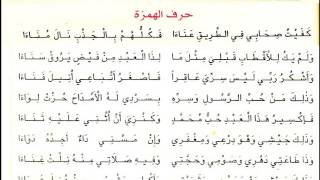 حرف الهمزة
كَفَيْتُ صِحَابِي فِي الطَّرِيقِ عَنَاءَا فَكُلُّهُمْ بِالْجَذْبِ نَالَ مُنَاءَا
وَلَمْ يَكُ لِلْأَقْطَابِ قَبْلِي مِثْلُ مَا لِذَا الْعَبْدِ مِنْ فَيْضٍ يَرُوقُ سَنَاءَا
وَأَشْكُرُ رَبِّي لَيْسَ سِرِّي عَاقِراً فَأَصْغَرُ أَتْبَاعِي أُنِيلَ سَنَاءَا
وَذَلِكَ مِنْ حُبِّ الرَّسُولِ وَسِرِّهِ بِسَرْدِي لَهُ الْأَمْدَاحَ حُزْتُ لِوَاءَا
فَإِكْسِيرُ هَذَا الْعَبْدِ حُبُّ مُحَمَّدٍ وَكَنْزِي أَنْ أُثْنِي عَلَيْهِ ثَنَاءَا
وَذَلِكَ جَيْشِي وَهْوَ دِرْعِي وَمِغْفَرِي وَإِنْ مَسَّنِي دَاءٌ أَجِدْهُ دَوَاءَا
وَذَا طَاعَتِي دَهْرِي وَصَوْمِي وَحُجَّتِي وَفِيهِ صَلَاتِي مِنْهُ نِلْتُ غَنَاءَا